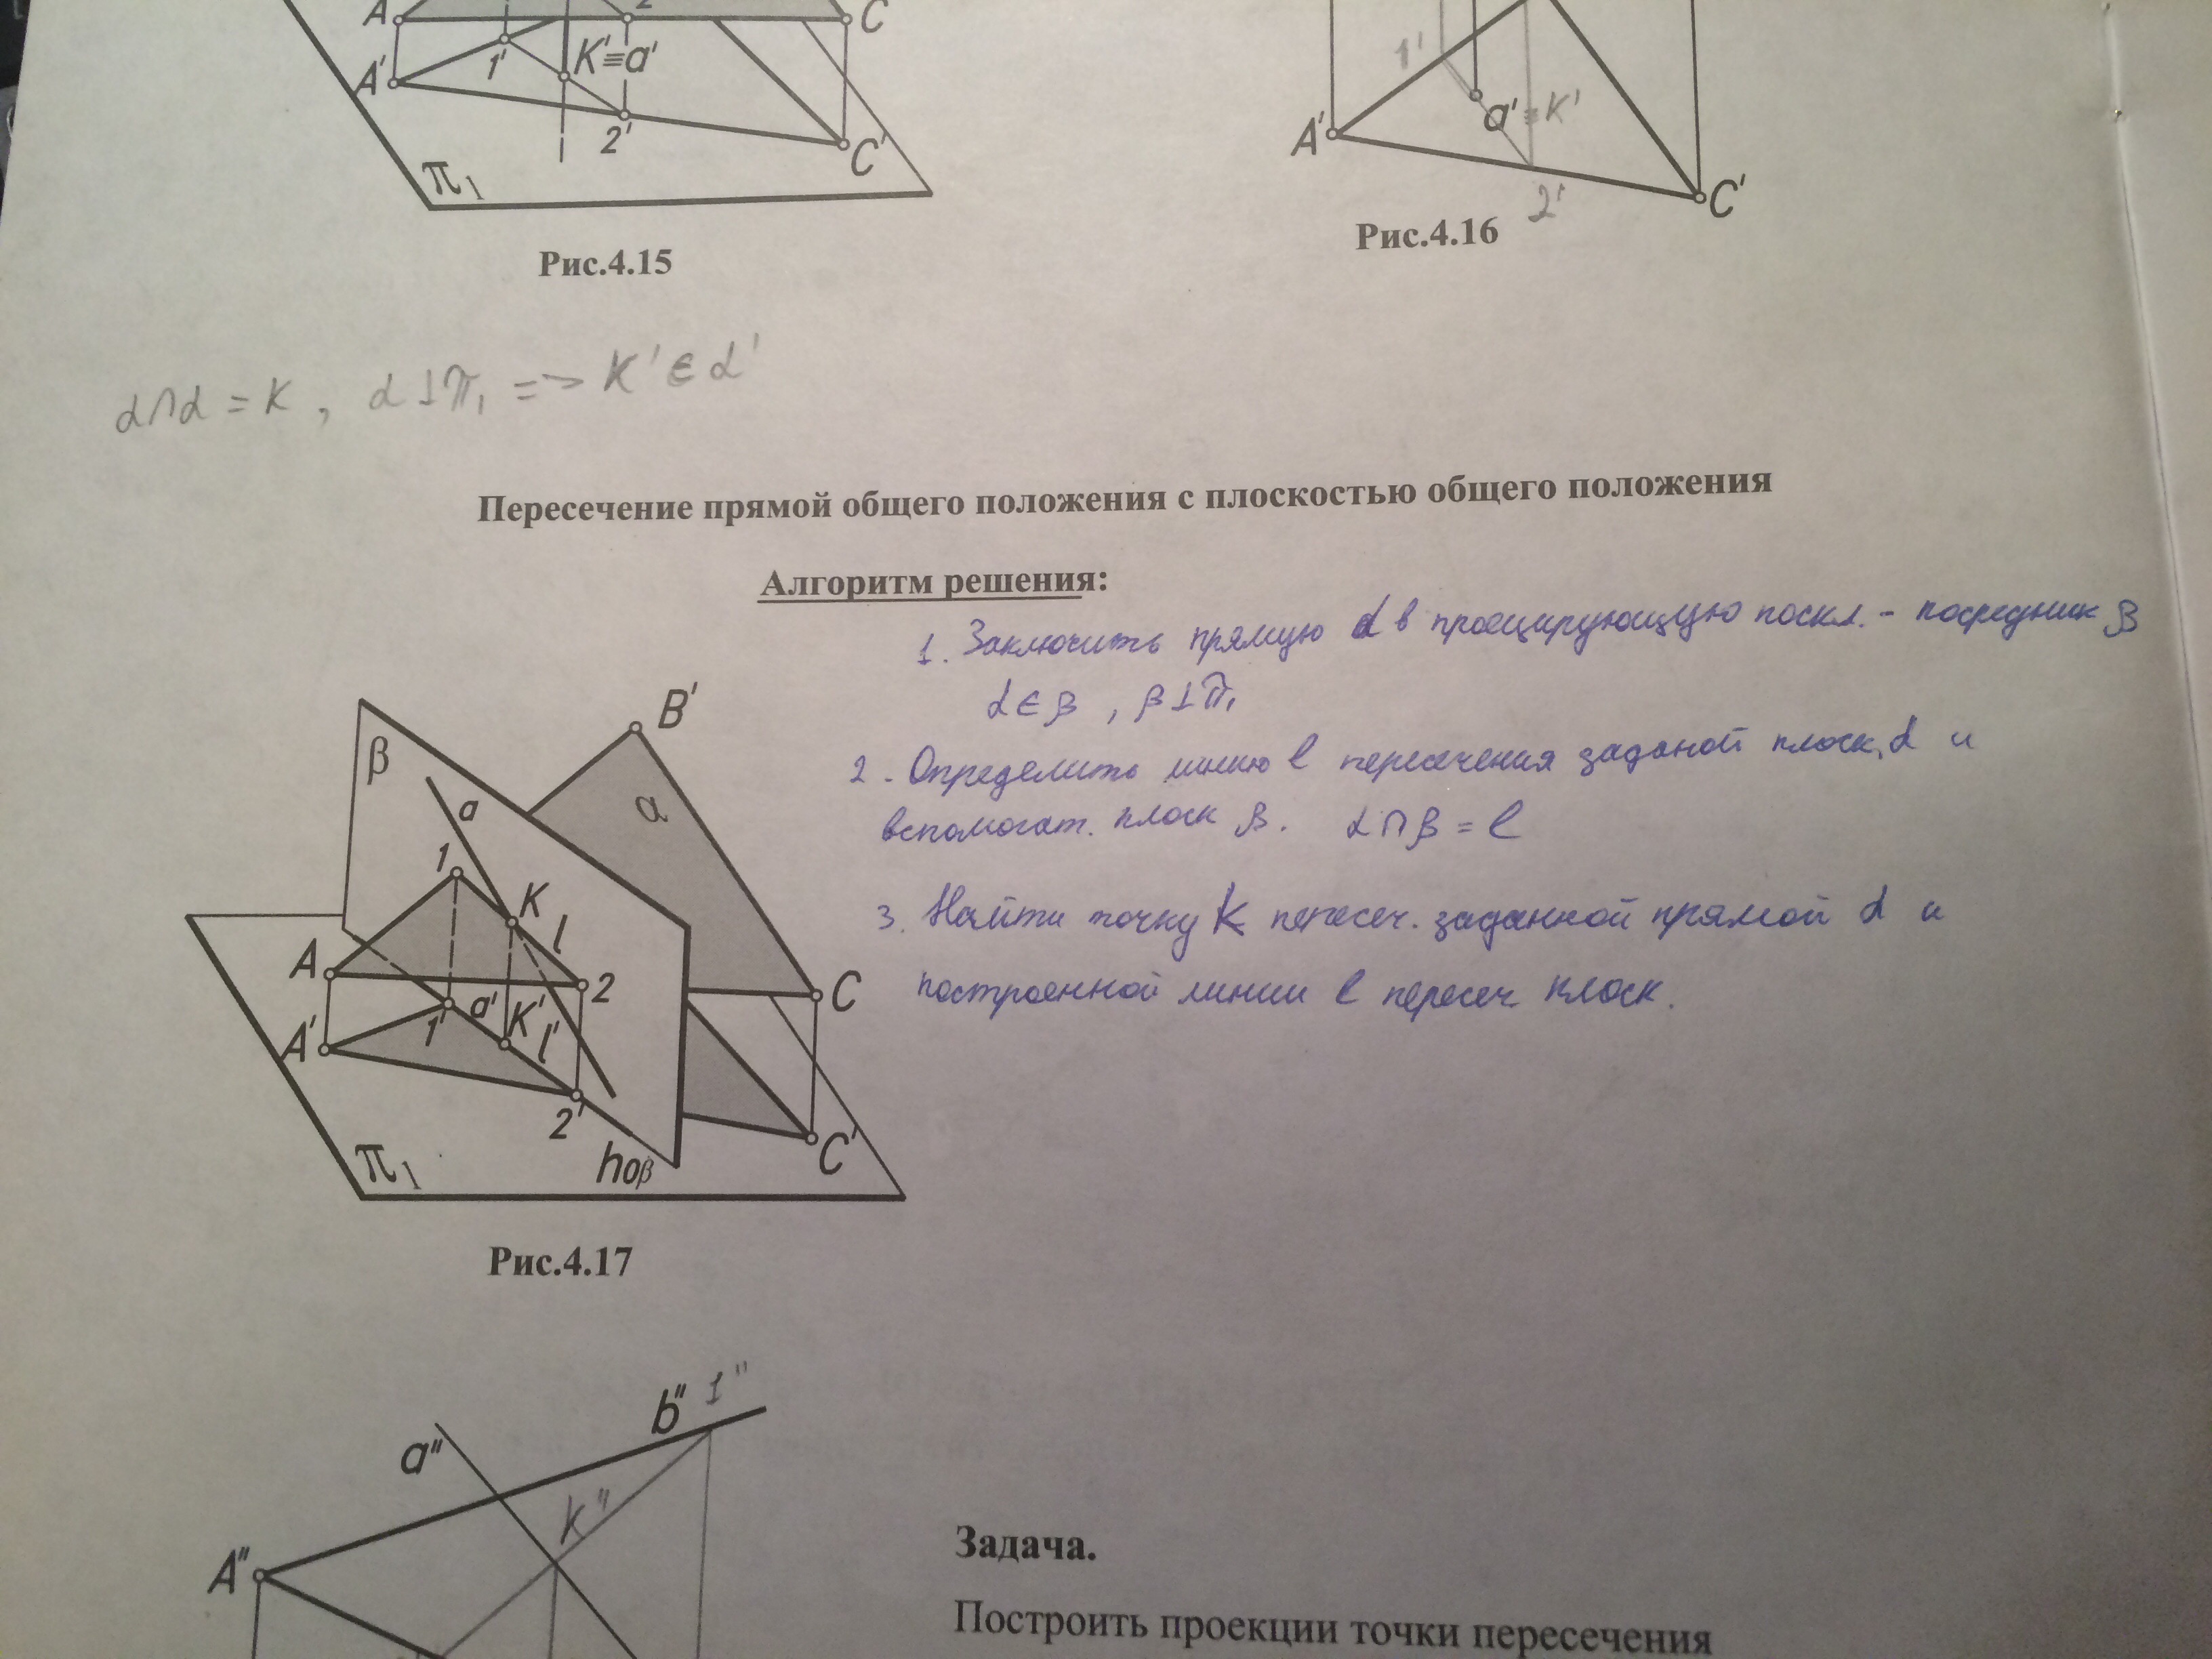 A
1'
2
C
A'
K'≡a'
2'
C'
π1
Рис.4.15
1'
A'
a'≡K'
2'
C'
Рис.4.16
α∩α = K , α⊥π₁ => K'∈α'
Пересечение прямой общего положения с плоскостью общего положения
Алгоритм решения:
1. Заключить прямую α в проецирующую поскл. - посредник β
α∈β , β⊥π₁
2. Определить линию l пересечения заданой плоск. α и
вспомогат. плоск β. α∩β = l
3. Найти точку K пересеч. заданной прямой α и
построенной линии l пересеч плоск.
B'
β
a
α
1
K
l
A
2
C
A'
1'
a'
K'
l'
2'
C'
π1
h0β
Рис.4.17
b" 1"
a"
K"
A"
Задача.
Построить проекции точки пересечения